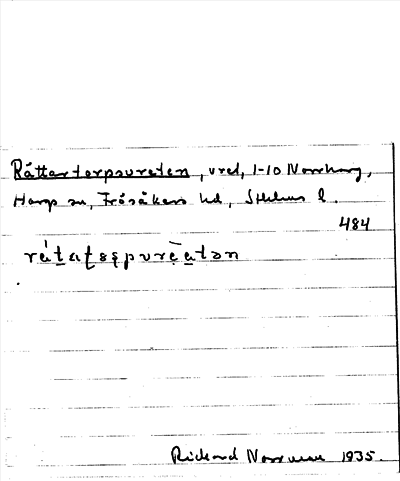 Råttartorpsvreten, vred, 1-10 Norrharg,
Harg sn, Frösåkers hd, Sthlms l.
484
rátatǝspvrèatǝn
Richard Norrman 1935.